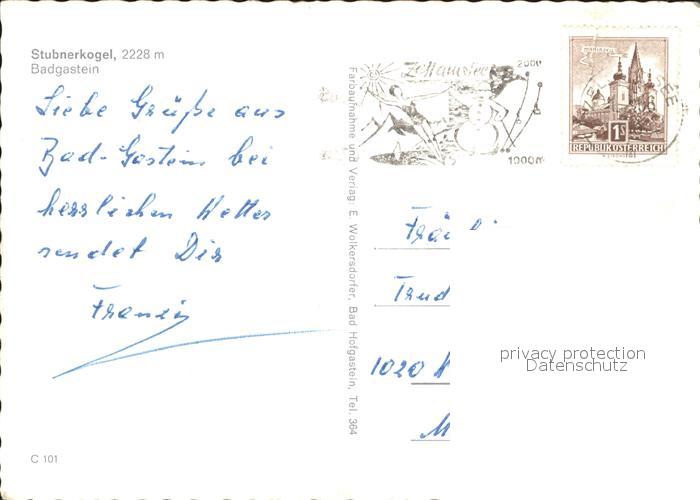 Stubnerkogel, 2228 m
Badgastein
Liebe Grüße aus
Bad-Gastein bei
herrlichen Wetter
sendet Dir
Franzi
C 101
Farbaufnahme und Verlag: E. Wolkersdorfer, Bad Hofgastein, Tel. 364
Zell am See
2000
1000m
MARIAZELL
1S
REPUBLIK ÖSTERREICH
SEE
Trud
1020
M
privacy protection
Datenschutz